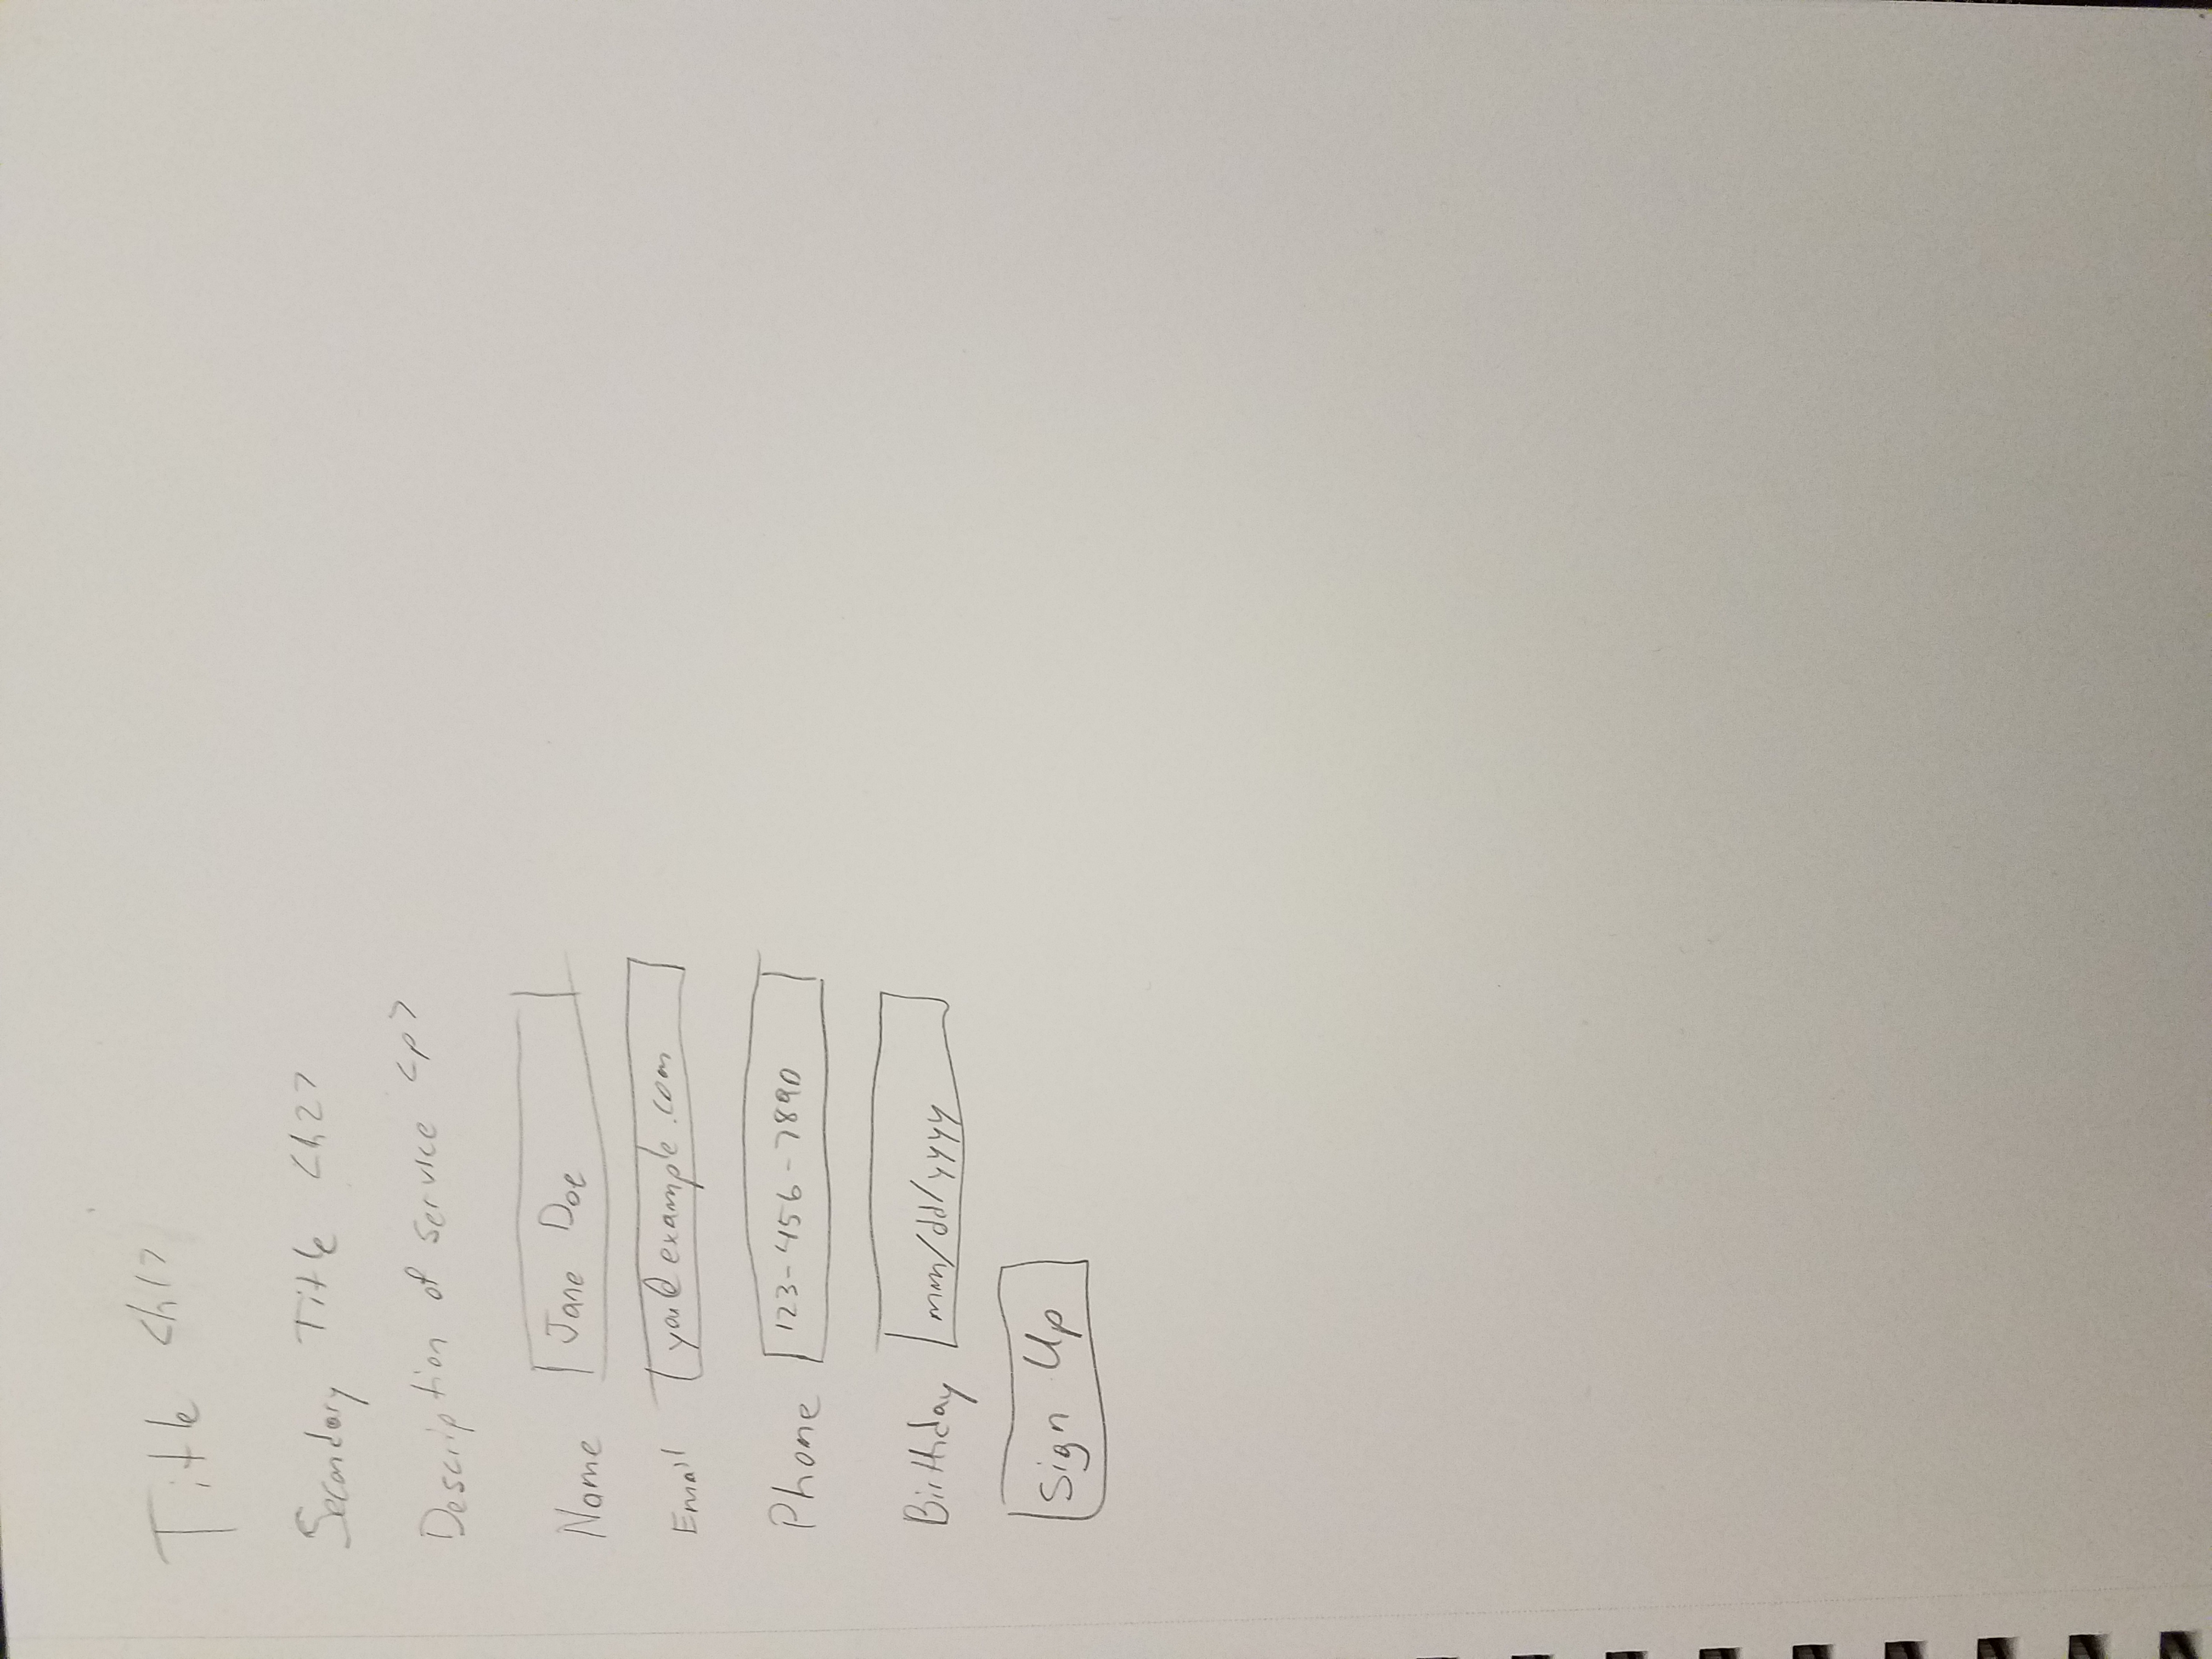 Title <h1>
Secondary Title <h2>
Description of service <p>
Name Jane Doe
Email you@example.com
Phone 123-456-7890
Birthday mm/dd/yyyy
Sign Up